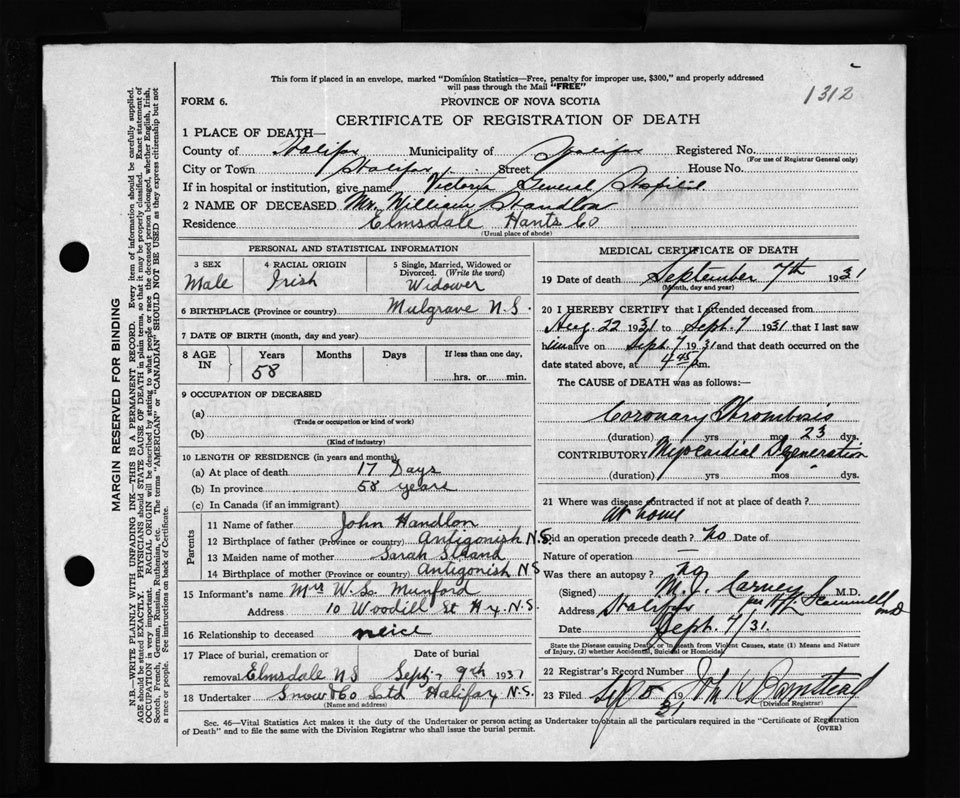 This form if placed in an envelope, marked "Dominion Statistics—Free, penalty for improper use, $300," and properly addressed
will pass through the Mail "FREE"
1312
FORM 6.
PROVINCE OF NOVA SCOTIA
CERTIFICATE OF REGISTRATION OF DEATH
1 PLACE OF DEATH—
County of Halifax Municipality of Halifax Registered No.
(For use of Registrar General only)
City or Town Halifax Street House No.
If in hospital or institution, give name Victoria General Hospital
2 NAME OF DECEASED Mr. William Handlon
Residence Elmsdale Hants Co
(Usual place of abode)
PERSONAL AND STATISTICAL INFORMATION
3 SEX 4 RACIAL ORIGIN 5 Single, Married, Widowed or
Divorced. (Write the word)
Male Irish Widower
6 BIRTHPLACE (Province or country) Mulgrave N.S.
7 DATE OF BIRTH (month, day and year)
8 AGE IN Years Months Days If less than one day,
58 hrs. or min.
9 OCCUPATION OF DECEASED
(a)
(Trade or occupation or kind of work)
(b)
(Kind of industry)
10 LENGTH OF RESIDENCE (in years and months)
(a) At place of death 17 Days
(b) In province 58 years
(c) In Canada (if an immigrant)
Parents
11 Name of father John Handlon
12 Birthplace of father (Province or country) Antigonish N.S.
13 Maiden name of mother Sarah
14 Birthplace of mother (Province or country) Antigonish N.S
15 Informant's name Mrs W.S. Munford
Address 10 Woodill St Hx. N.S.
16 Relationship to deceased neice
17 Place of burial, cremation or Date of burial
removal Elmsdale N S Sept 9th 1931
18 Undertaker Snow & Co Ltd Halifax N.S.
(Name and address)
MEDICAL CERTIFICATE OF DEATH
19 Date of death September 7th 1931
(Month, day and year)
20 I HEREBY CERTIFY that I attended deceased from
Aug. 22 1931 to Sept. 7 1931 that I last saw
him alive on Sept. 7 1931 and that death occurred on the
date stated above, at 4.45 p m.
The CAUSE of DEATH was as follows:—
Coronary Thrombosis
(duration) yrs mos 23 dys.
CONTRIBUTORY Myocardial Degeneration
(duration) yrs mos dys.
21 Where was disease contracted if not at place of death?
At home
Did an operation precede death? No Date of
Nature of operation —
Was there an autopsy? No
(Signed) M.J. Carney M.D.
Address Halifax per H. Scammell md
Date Sept. 7/31.
State the Disease causing Death, or in death from Violent Causes, state (1) Means and Nature
of Injury, (2) whether Accidental, Suicidal or Homicidal.
22 Registrar's Record Number
23 Filed 8 1931
(Division Registrar)
Sec. 46—Vital Statistics Act makes it the duty of the Undertaker or person acting as Undertaker to obtain all the particulars required in the "Certificate of Registration
of Death" and to file the same with the Division Registrar who shall issue the burial permit.
(OVER)
MARGIN RESERVED FOR BINDING
N.B.—WRITE PLAINLY WITH UNFADING INK—THIS IS A PERMANENT RECORD. Every item of information should be carefully supplied.
AGE should be stated EXACTLY. PHYSICIANS should STATE CAUSE OF DEATH in plain terms, so that it may be properly classified. Exact statement of
OCCUPATION is very important. RACIAL ORIGIN will be described by stating to what people or race the deceased person belonged, whether English, Irish,
Scotch, French, German, Russian, Ruthenian, etc. The terms "AMERICAN" or "CANADIAN" SHOULD NOT BE USED as they express citizenship but not
a race or people. See instructions on back of Certificate.